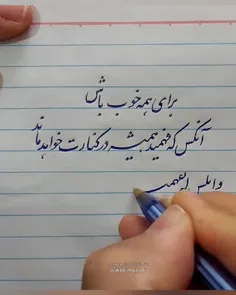 برای همه خوب باش
آنکس که فهمید همیشه در کنارت خواهد ماند
و آنکس که نفهمید